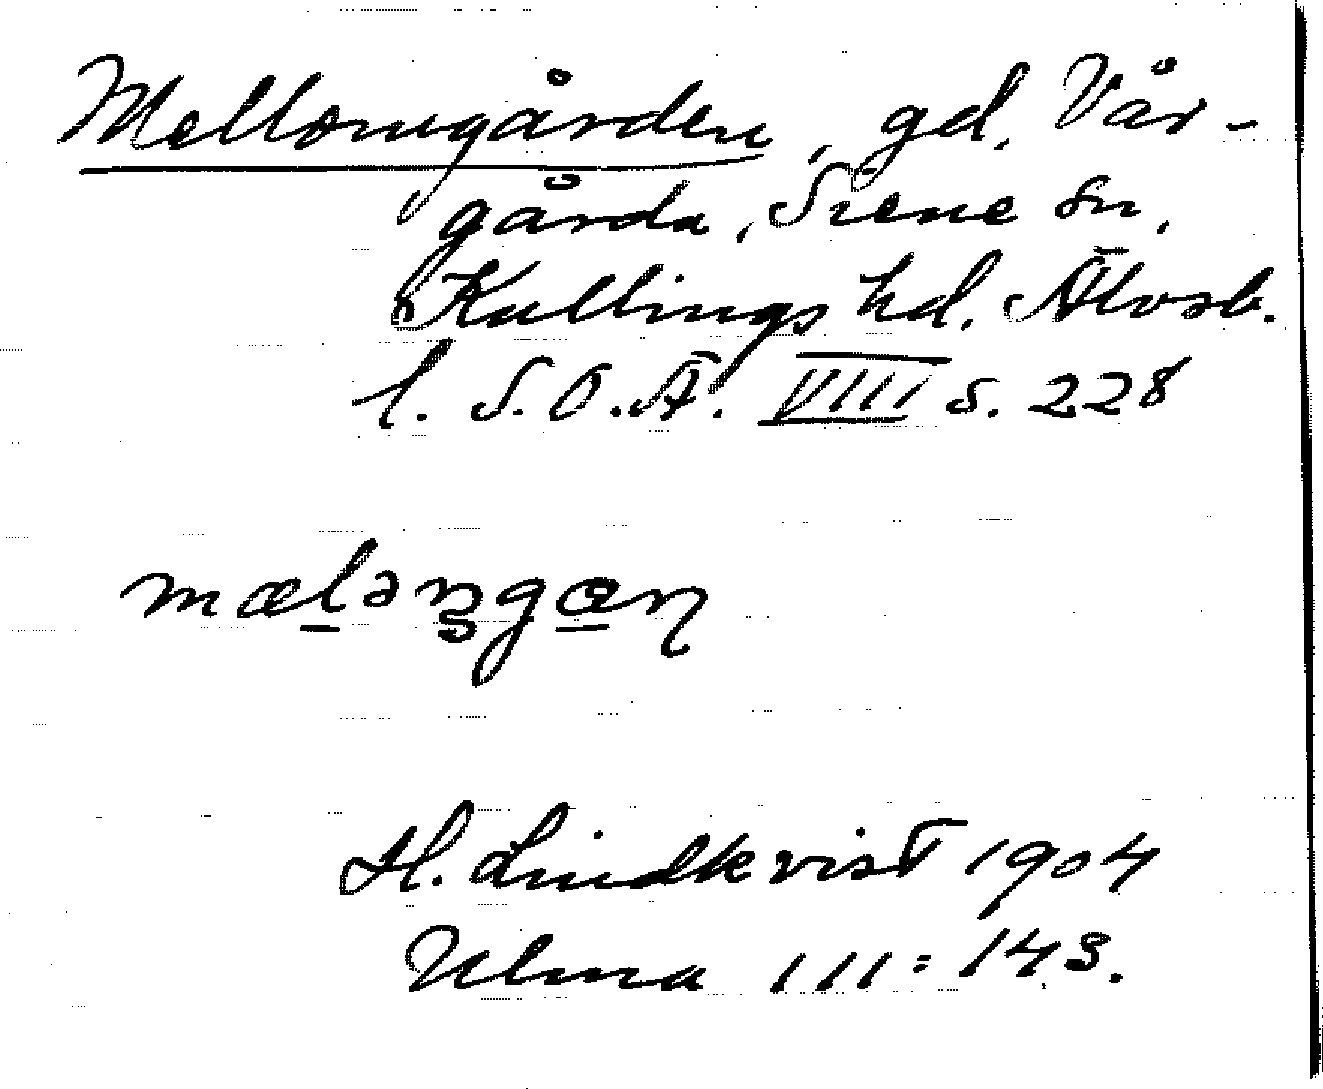 Mellomgården, gd. Vår-
gårda, Siene sn,
Kullings hd. Älvsb.
l. S.O.Ä. VIII s. 228
mæləŋgan
H. Lindkvist 1904
Ulma 111:143.